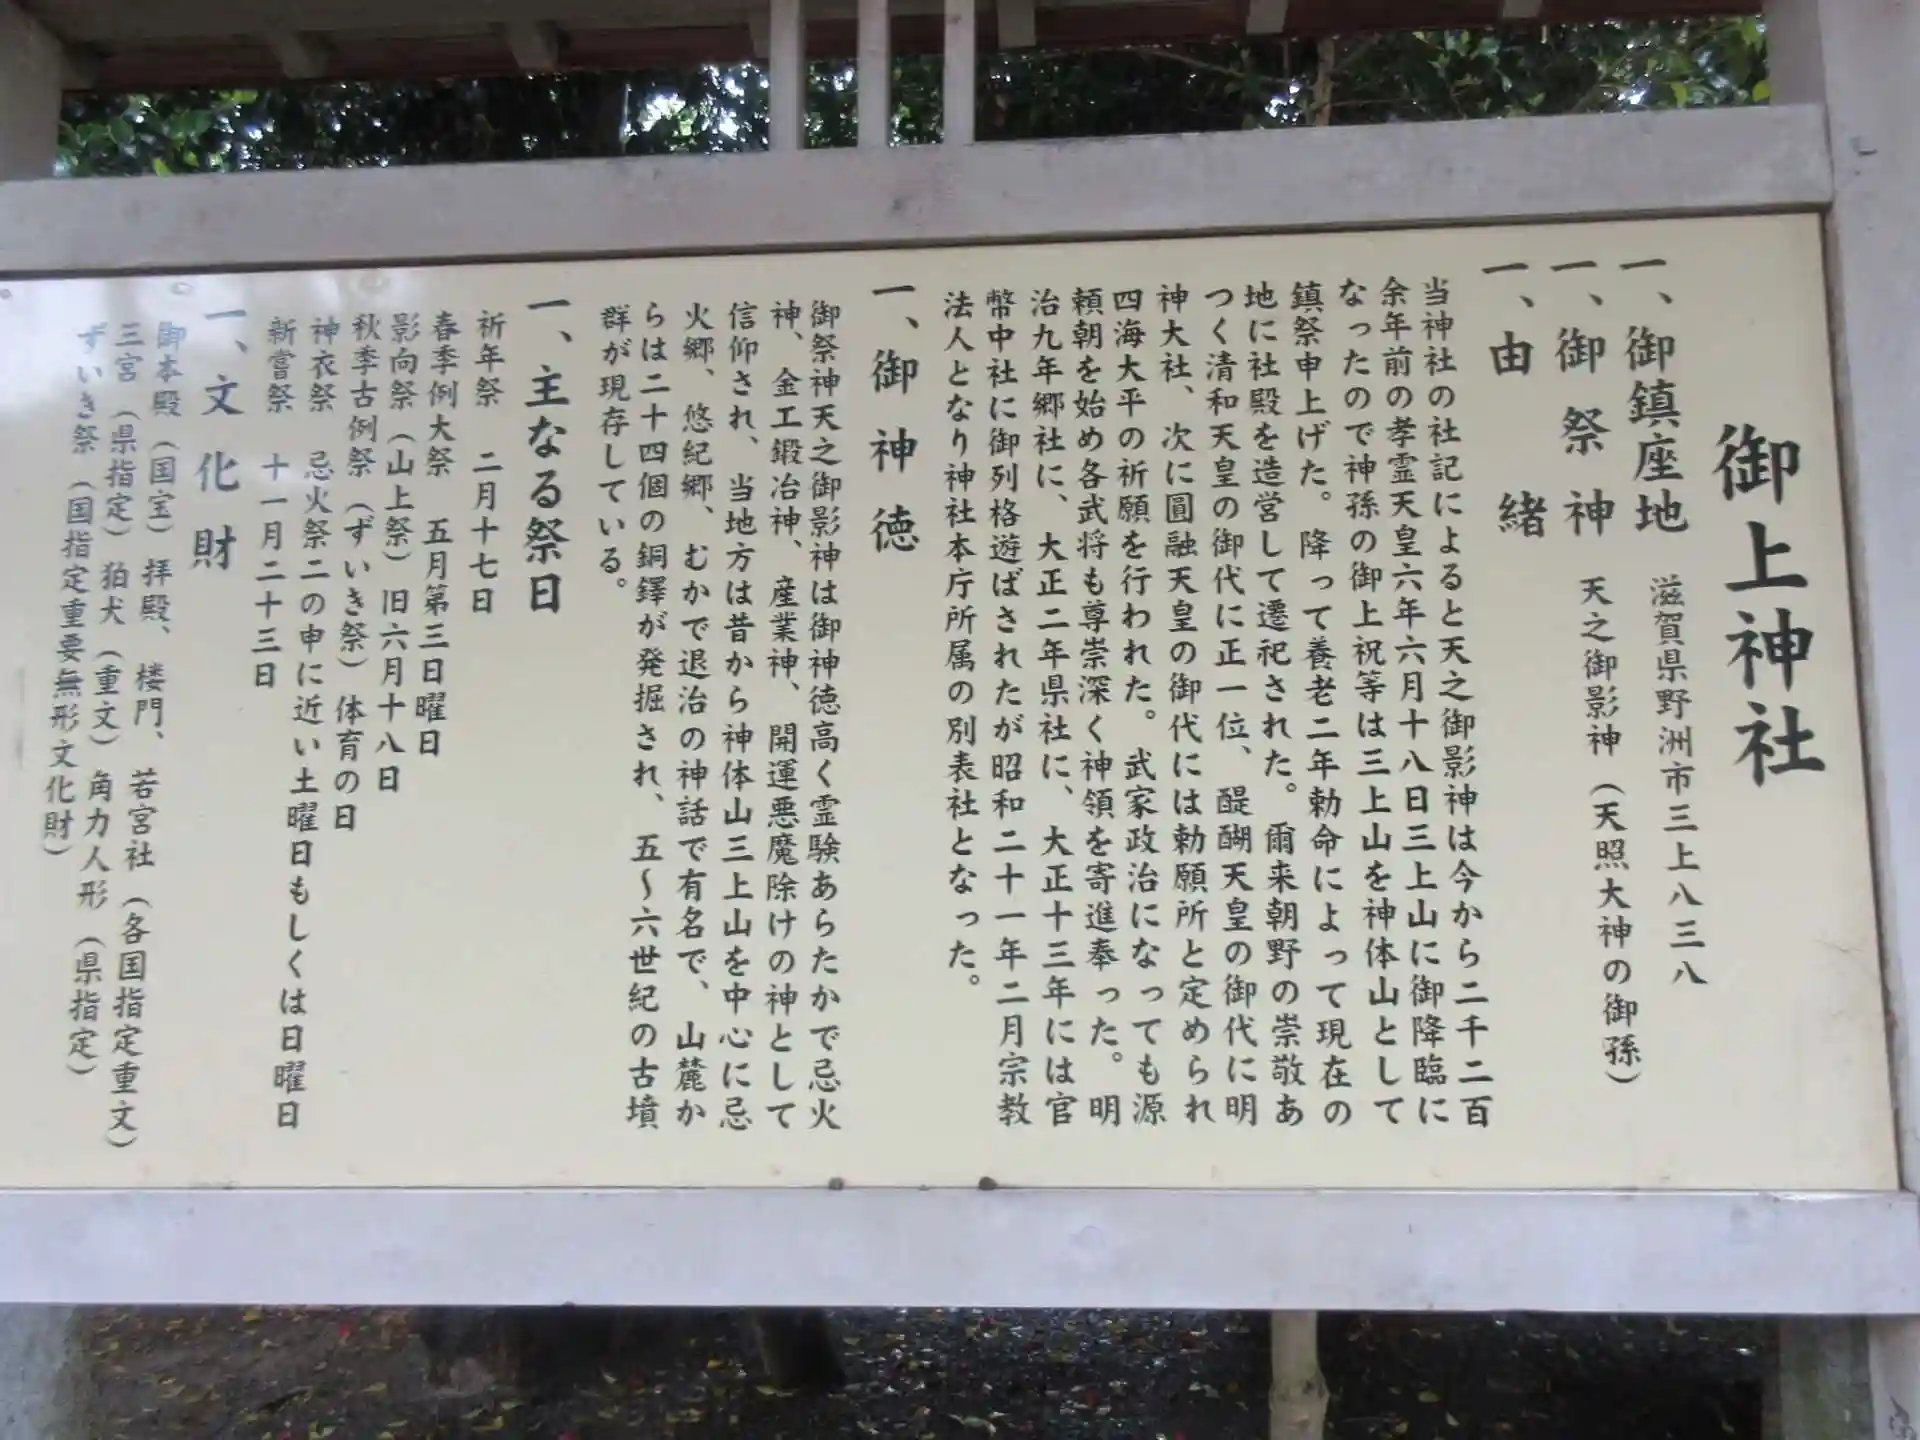 御上神社
一、御鎮座地　滋賀県野洲市三上八三八
一、御祭神　天之御影神（天照大神の御孫）
一、由緒
当神社の社記によると天之御影神は今から二千二百
余年前の孝霊天皇六年六月十八日三上山に御降臨に
なったので神孫の御上祝等は三上山を神体山として
鎮祭申上げた。降って養老二年勅命によって現在の
地に社殿を造営して遷祀された。爾来朝野の崇敬あ
つく清和天皇の御代に正一位、醍醐天皇の御代に明
神大社、次に圓融天皇の御代には勅願所と定められ
四海大平の祈願を行われた。武家政治になっても源
頼朝を始め各武将も尊崇深く神領を寄進奉った。明
治九年郷社に、大正二年県社に、大正十三年には官
幣中社に御列格遊ばされたが昭和二十一年二月宗教
法人となり神社本庁所属の別表社となった。
一、御神徳
御祭神天之御影神は御神徳高く霊験あらたかで忌火
神、金工鍛冶神、産業神、開運悪魔除けの神として
信仰され、当地方は昔から神体山三上山を中心に忌
火郷、悠紀郷、むかで退治の神話で有名で、山麓か
らは二十四個の銅鐸が発掘され、五〜六世紀の古墳
群が現存している。
一、主なる祭日
祈年祭　二月十七日
春季例大祭　五月第三日曜日
影向祭（山上祭）旧六月十八日
秋季古例祭（ずいき祭）体育の日
神衣祭　忌火祭二の申に近い土曜日もしくは日曜日
新嘗祭　十一月二十三日
一、文化財
御本殿（国宝）拝殿、楼門、若宮社（各国指定重文）
三宮（県指定）狛犬（重文）角力人形（県指定）
ずいき祭（国指定重要無形文化財）